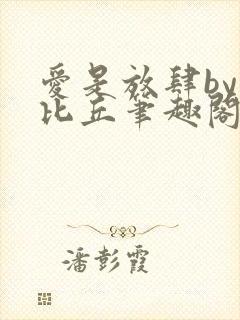 愛是放肆by
比丘筆趣閣
潘彭霞